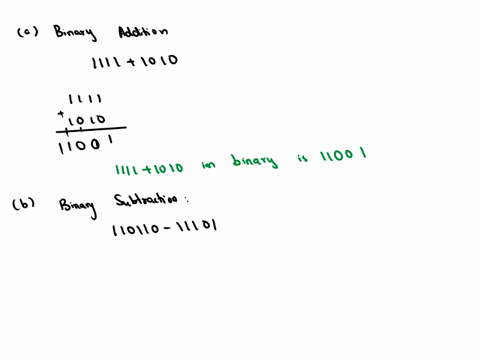 (a) Binary Addition
1111 + 1010
1111
+ 1010
11001
1111 + 1010 in binary is 11001
(b) Binary Subtraction:
110110 - 11101